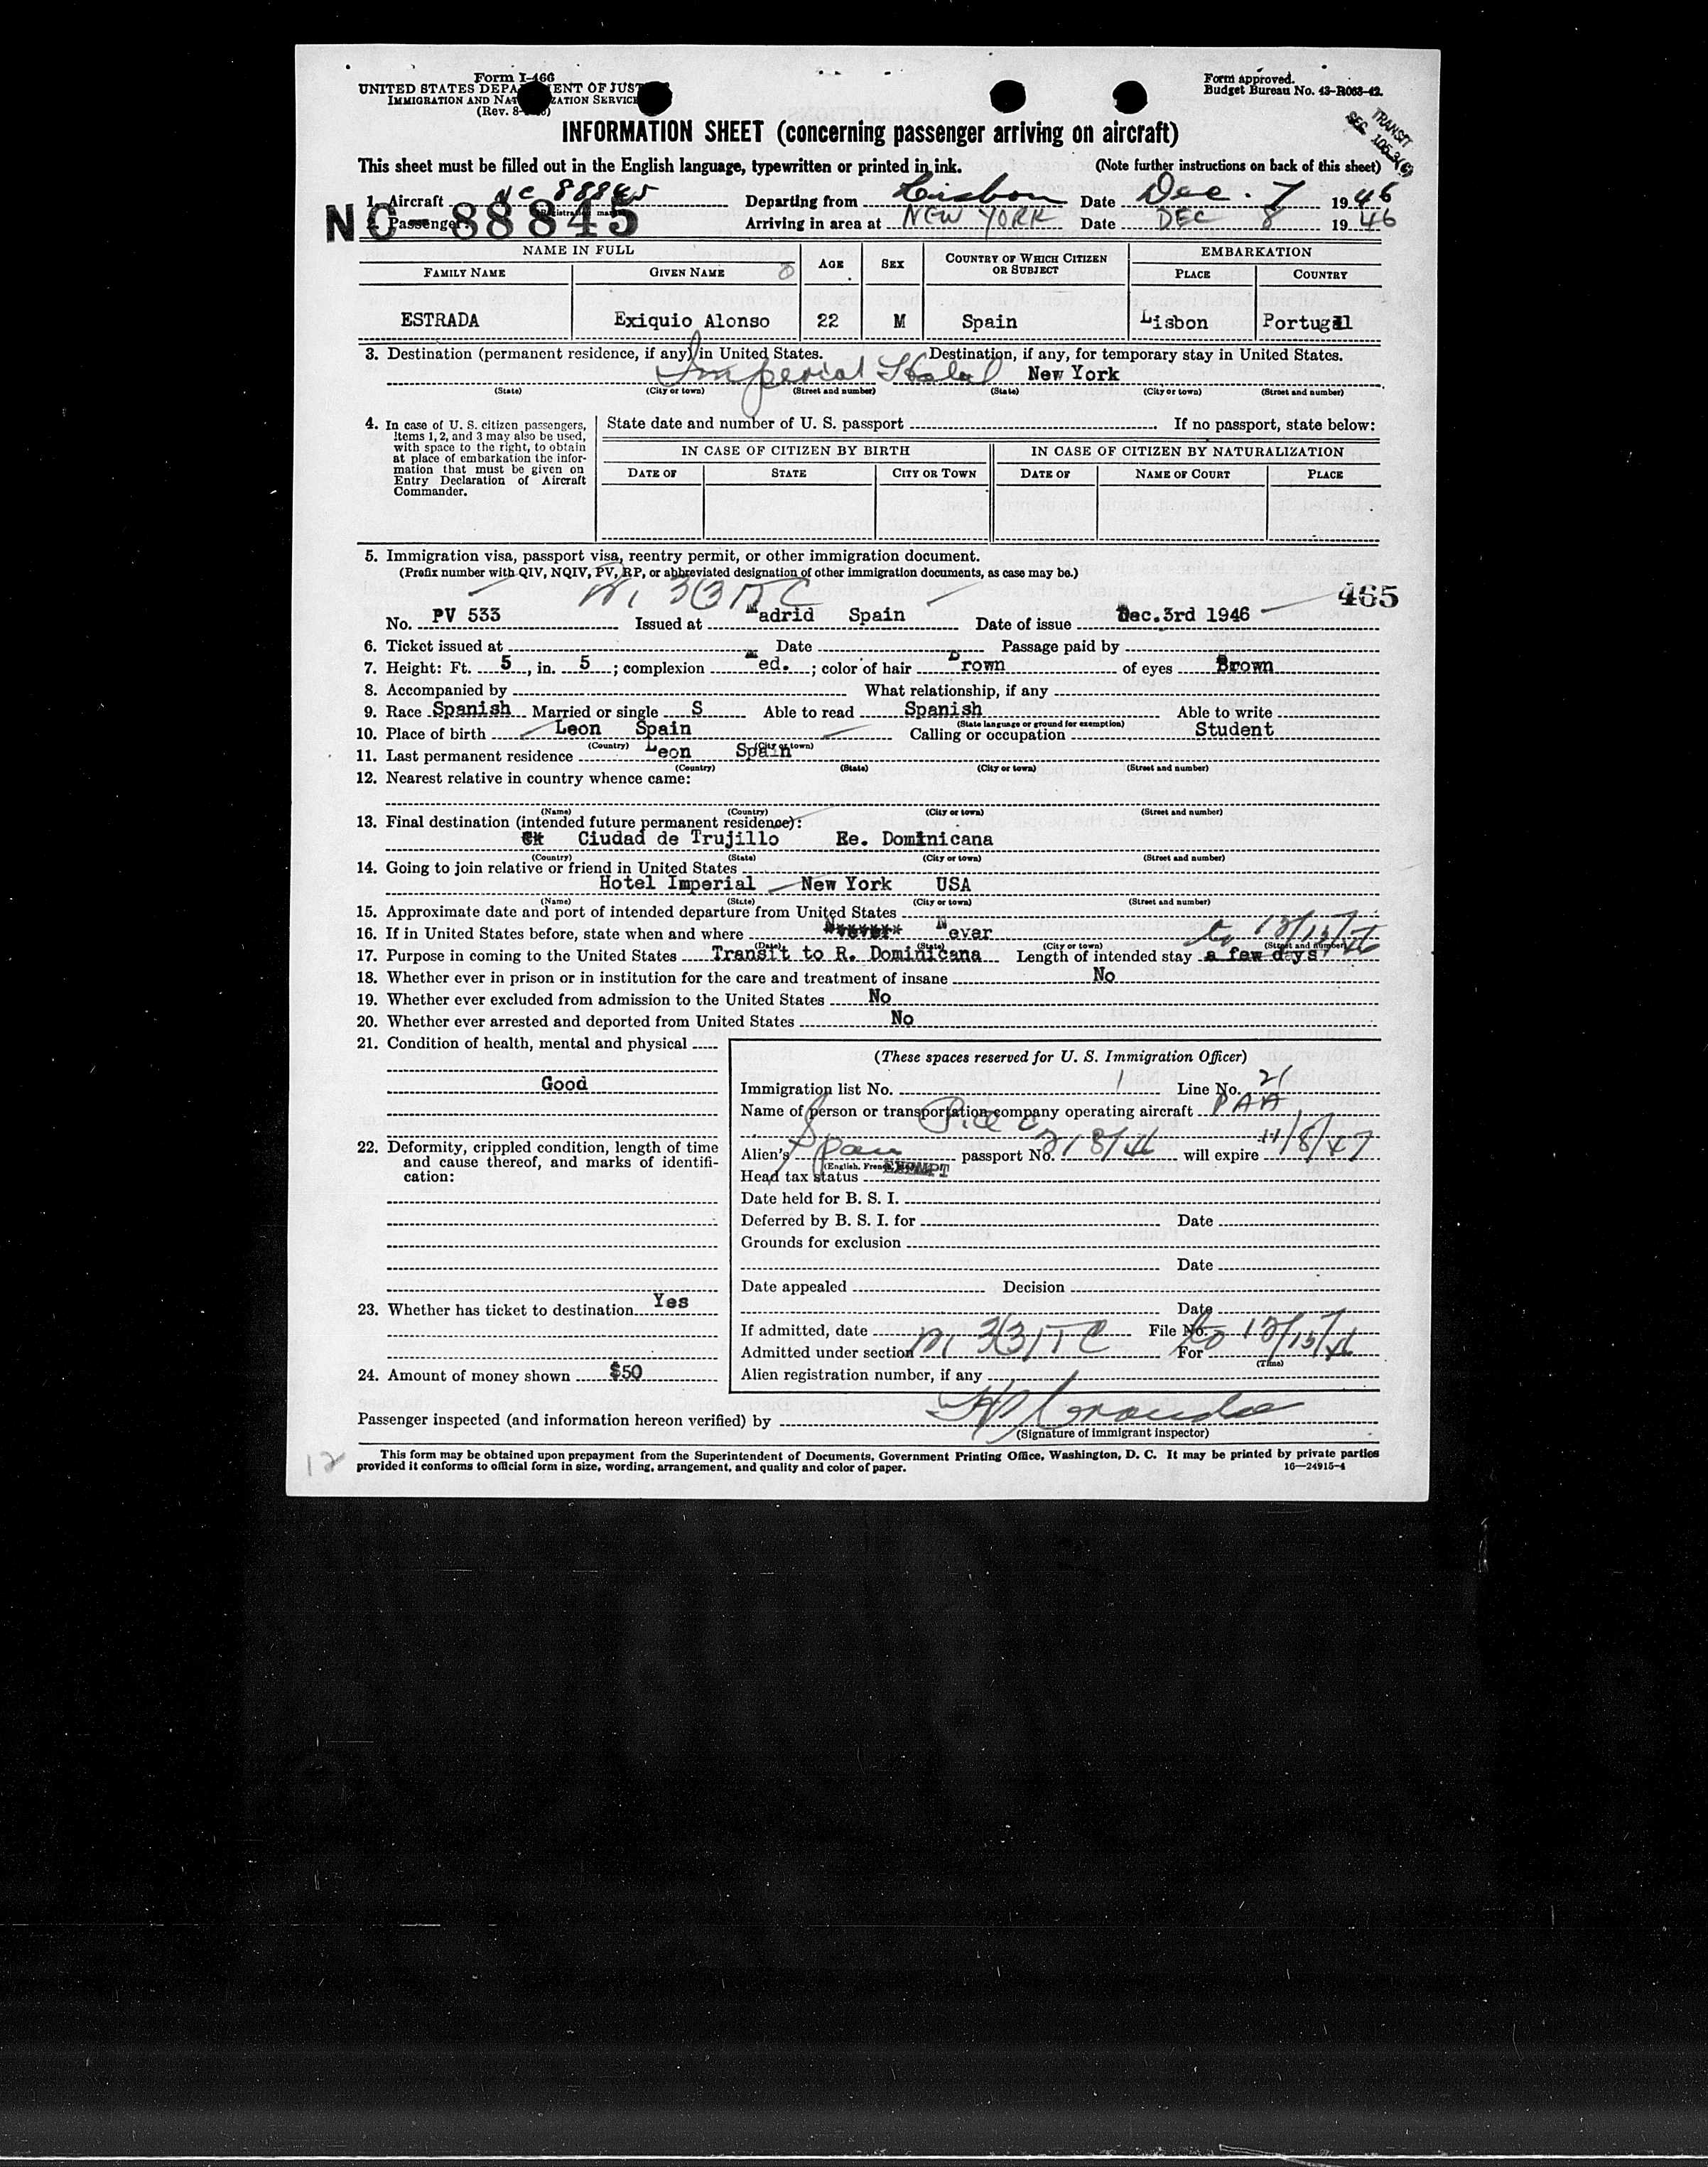 Form I-466
UNITED STATES DEPA ENT OF JUST
IMMIGRATION AND NAT ZATION SERVICE
(Rev. 8-
Form approved.
Budget Bureau No. 43-R063-42.
TRANSIT
SEC
INFORMATION SHEET (concerning passenger arriving on aircraft)
This sheet must be filled out in the English language, typewritten or printed in ink. (Note further instructions on back of this sheet)
1. Aircraft NC 88845 Departing from Lisbon Date Dec. 7 1946
NC 88845
Passenger Arriving in area at NEW YORK Date DEC 8 1946
NAME IN FULL AGE SEX COUNTRY OF WHICH CITIZEN OR SUBJECT EMBARKATION
FAMILY NAME GIVEN NAME PLACE COUNTRY
ESTRADA Exiquio Alonso 22 M Spain Lisbon Portugal
3. Destination (permanent residence, if any) in United States. Destination, if any, for temporary stay in United States.
Imperial Hotel New York
(State) (City or town) (Street and number) (State) (City or town) (Street and number)
4. In case of U. S. citizen passengers, items 1, 2, and 3 may also be used, with space to the right, to obtain at place of embarkation the information that must be given on Entry Declaration of Aircraft Commander.
State date and number of U. S. passport If no passport, state below:
IN CASE OF CITIZEN BY BIRTH IN CASE OF CITIZEN BY NATURALIZATION
DATE OF STATE CITY OR TOWN DATE OF NAME OF COURT PLACE
5. Immigration visa, passport visa, reentry permit, or other immigration document.
(Prefix number with QIV, NQIV, PV, RP, or abbreviated designation of other immigration documents, as case may be.)
465
No. PV 533 Issued at Madrid Spain Date of issue Dec.3rd 1946
6. Ticket issued at Date Passage paid by
7. Height: Ft. 5, in. 5; complexion Med.; color of hair Brown of eyes Brown
8. Accompanied by What relationship, if any
9. Race Spanish Married or single S Able to read Spanish Able to write
(State language or ground for exemption)
10. Place of birth Leon Spain Calling or occupation Student
(Country) (City or town)
11. Last permanent residence Leon Spain
(Country) (State) (City or town) (Street and number)
12. Nearest relative in country whence came:
(Name) (Country) (City or town) (Street and number)
13. Final destination (intended future permanent residence):
Ciudad de Trujillo Re. Dominicana
(Country) (State) (City or town) (Street and number)
14. Going to join relative or friend in United States
Hotel Imperial New York USA
(Name) (State) (City or town) (Street and number)
15. Approximate date and port of intended departure from United States
16. If in United States before, state when and where Never
(Date) (State) (City or town) (Street and number)
17. Purpose in coming to the United States Transit to R. Dominicana Length of intended stay a few days
18. Whether ever in prison or in institution for the care and treatment of insane No
19. Whether ever excluded from admission to the United States No
20. Whether ever arrested and deported from United States No
21. Condition of health, mental and physical
Good
22. Deformity, crippled condition, length of time and cause thereof, and marks of identification:
23. Whether has ticket to destination Yes
24. Amount of money shown $50
(These spaces reserved for U. S. Immigration Officer)
Immigration list No. 1 Line No. 21
Name of person or transportation company operating aircraft PAA
Alien's Span passport No. 218/46 will expire 11/8/47
(English, French, etc.)
Head tax status EXEMPT
Date held for B. S. I.
Deferred by B. S. I. for Date
Grounds for exclusion
Date
Date appealed Decision
Date
If admitted, date File No.
Admitted under section For
(Time)
Alien registration number, if any
Passenger inspected (and information hereon verified) by
(Signature of immigrant inspector)
12
This form may be obtained upon prepayment from the Superintendent of Documents, Government Printing Office, Washington, D. C. It may be printed by private parties
provided it conforms to official form in size, wording, arrangement, and quality and color of paper. 16—24915-4